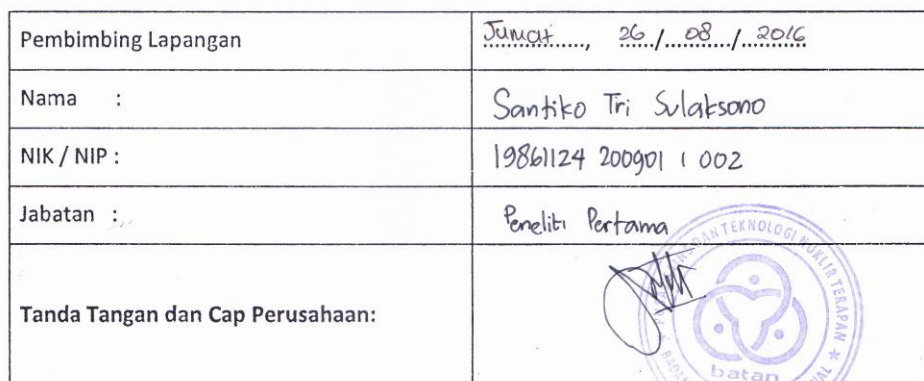 Pembimbing Lapangan Jumat, 26 / 08 / 2016
Nama : Santiko Tri Sulaksono
NIK / NIP : 19861124 200901 1 002
Jabatan : Peneliti Pertama
Tanda Tangan dan Cap Perusahaan:
DAN TEKNOLOGI NUKLIR TERAPAN
batan